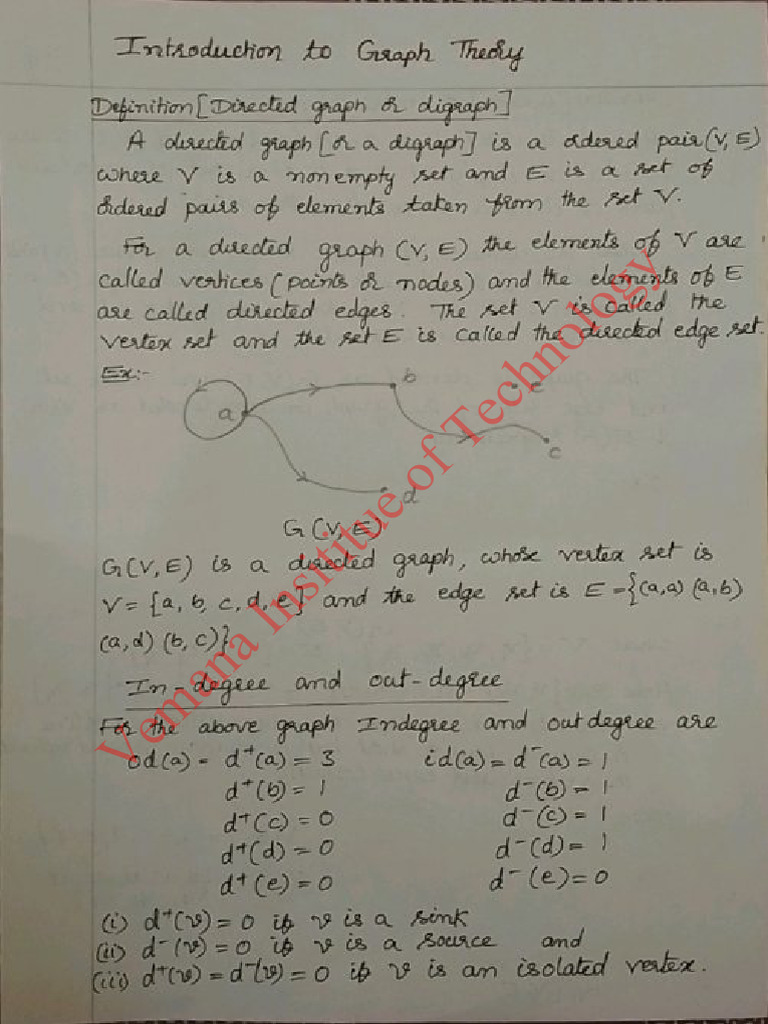 Introduction to Graph Theory
Definition [Directed graph or digraph]
A directed graph [or a digraph] is a ordered pair (V, E)
where V is a nonempty set and E is a set of
ordered pairs of elements taken from the set V.
For a directed graph (V, E) the elements of V are
called vertices (points or nodes) and the elements of E
are called directed edges. The set V is called the
vertex set and the set E is called the directed edge set.
Ex:-
a b e c d
G(V, E)
G(V, E) is a directed graph, whose vertex set is
V = {a, b, c, d, e} and the edge set is E = {(a,a) (a,b)
(a,d) (b,c)}
In-degree and out-degree
For the above graph Indegree and outdegree are
od(a) = d⁺(a) = 3 id(a) = d⁻(a) = 1
d⁺(b) = 1 d⁻(b) = 1
d⁺(c) = 0 d⁻(c) = 1
d⁺(d) = 0 d⁻(d) = 1
d⁺(e) = 0 d⁻(e) = 0
(i) d⁺(v) = 0 if v is a sink
(ii) d⁻(v) = 0 if v is a source and
(iii) d⁺(v) = d⁻(v) = 0 if v is an isolated vertex.
Vemana Institue of Technology